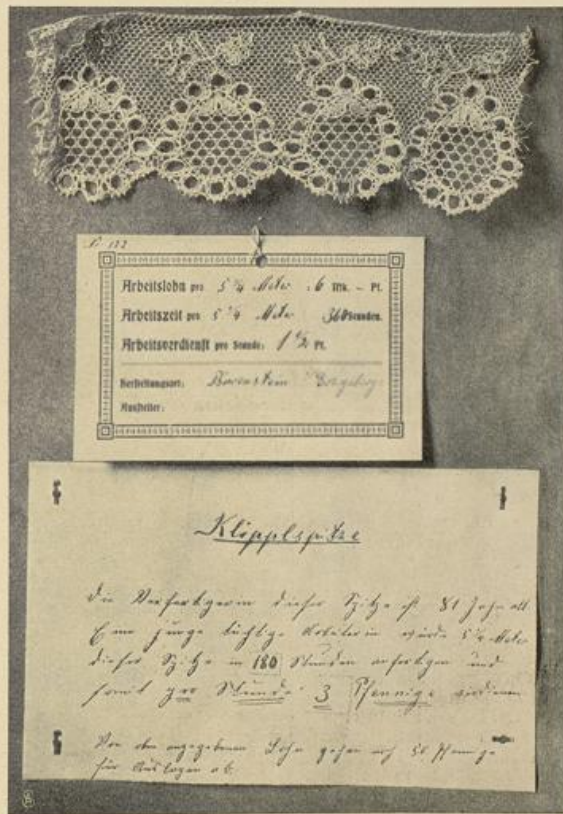 Nr 122
Arbeitslohn pro 5 1/4 Meter : 6 Mk. – Pf.
Arbeitszeit pro 5 1/4 Meter 360 Stunden.
Arbeitsverdienst pro Stunde: 1 1/2 Pf.
Herstellungsort: Bärenstein Erzgebirge
Aussteller:
Klöppelspitze
Die Verfertigerin dieser Spitze ist 81 Jahr alt
Eine junge tüchtige Arbeiterin würde 5 1/4 Meter
dieser Spitze in 180 Stunden anfertigen und
somit pro Stunde 3 Pfennige verdienen
Von dem angegebenen Lohn gehen noch 50 Pfennige
für Auslagen ab.